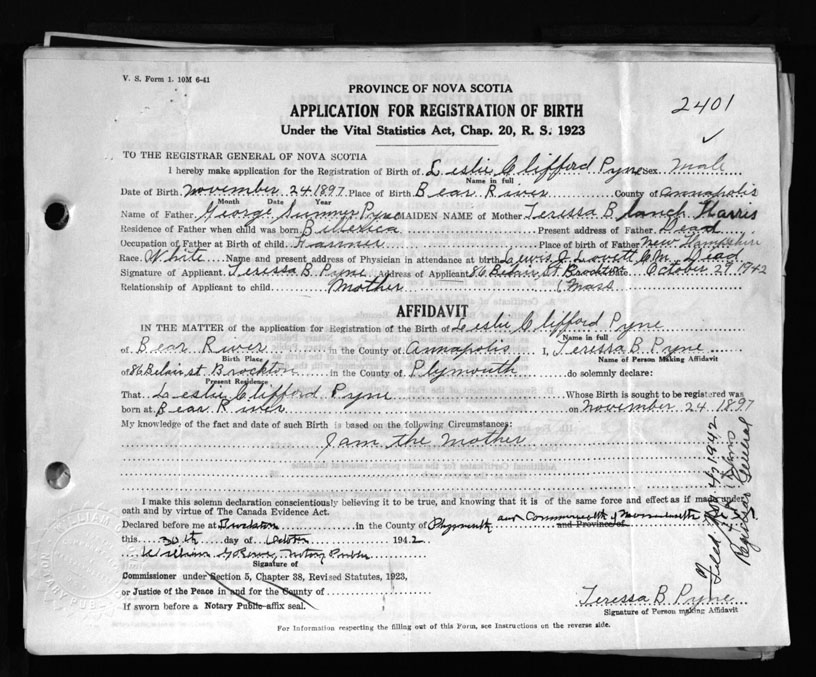 V. S. Form 1. 10M 6-41
PROVINCE OF NOVA SCOTIA
2401
APPLICATION FOR REGISTRATION OF BIRTH
Under the Vital Statistics Act, Chap. 20, R. S. 1923
TO THE REGISTRAR GENERAL OF NOVA SCOTIA
I hereby make application for the Registration of Birth of Leslie Clifford Pyne sex Male
Name in full
Date of Birth November 24 1897 Place of Birth Bear River County of Annapolis
Month Date Year
Name of Father George Sumner Pyne MAIDEN NAME of Mother Teressa Blanch Harris
Residence of Father when child was born Billerica Present address of Father Dead
Occupation of Father at Birth of child Place of Birth of Father New Hampshire
Race White Name and present address of Physician in attendance at birth Lewis J. Lovett C.M. Dead
Signature of Applicant Teressa B. Pyne Address of Applicant 86 Belair St Brockton October 29 1942
Relationship of Applicant to child Mother (Mass
AFFIDAVIT
IN THE MATTER of the application for Registration of the Birth of Leslie Clifford Pyne
Name in full
of Bear River in the County of Annapolis I, Teressa B Pyne
Birth Place Name of Person Making Affidavit
of 86 Belair st Brockton in the County of Plymouth do solemnly declare:
Present Residence
That Leslie Clifford Pyne Whose Birth is sought to be registered was
born at Bear River on November 24 1897
My knowledge of the fact and date of such Birth is based on the following Circumstances:
I am the Mother
I make this solemn declaration conscientiously believing it to be true, and knowing that it is of the same force and effect as if made under
oath and by virtue of The Canada Evidence Act.
Declared before me at Brockton in the County of Plymouth and Commonwealth of Massachusetts and Province of
this 30th day of October 1942
William Notary Public
Signature of
Commissioner under Section 5, Chapter 38, Revised Statutes, 1923,
or Justice of the Peace in and for the County of
If sworn before a Notary Public affix seal.
Teressa B Pyne
Signature of Person making Affidavit
For Information respecting the filling out of this Form, see Instructions on the reverse side.
Filed Nov 4/1942
Registrar General